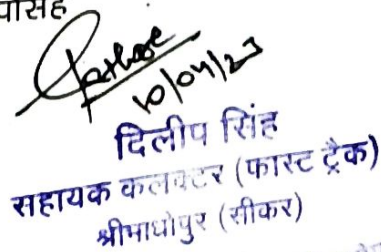 10/04/23
दिलीप सिंह
सहायक कलक्टर (फास्ट ट्रैक)
श्रीमाधोपुर (सीकर)